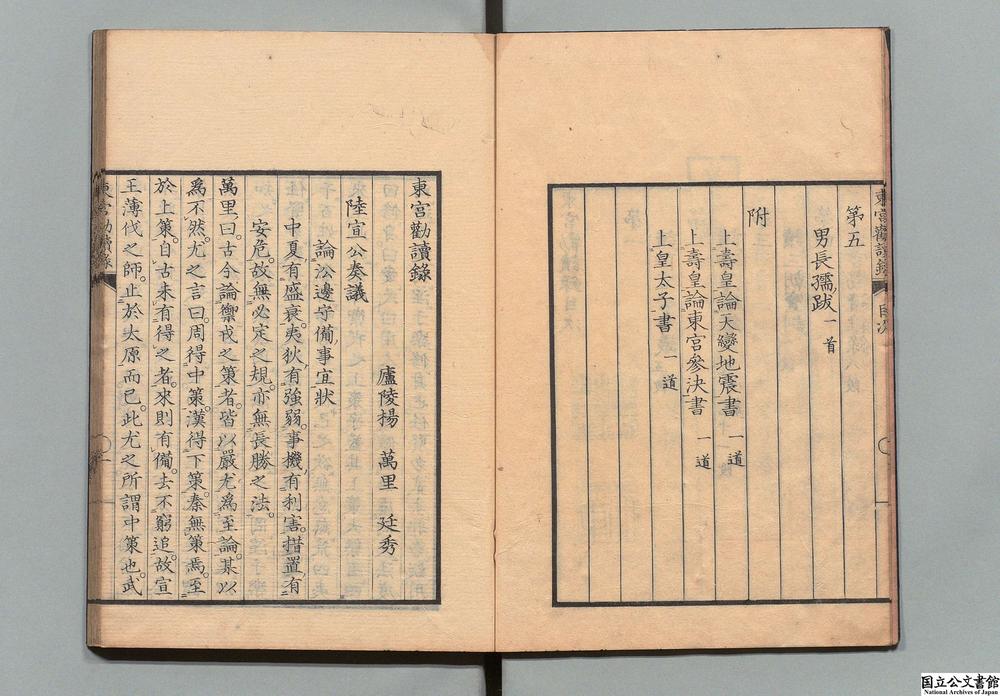 東宮勸讀錄 目次
第五
男長孺跋 一首
附
上壽皇論天變地震書 一道
上壽皇論東宮參決書 一道
上皇太子書 一道
東宮勸讀錄
廬陵楊 萬里 廷秀
陸宣公奏議
論沿邊守備事宜狀
中夏有盛衰夷狄有強弱事機有利害措置有
安危故無必定之規亦無長勝之法
萬里曰古今論禦戎之策者皆以嚴尤為至論某以
為不然尤之言曰周得中策漢得下策秦無策焉至
於上策自古未有得之者來則有備去不窮追故宣
王薄伐之師止於太原而已此尤之所謂中策也武
東宮勸讀錄
国立公文書館
National Archives of Japan